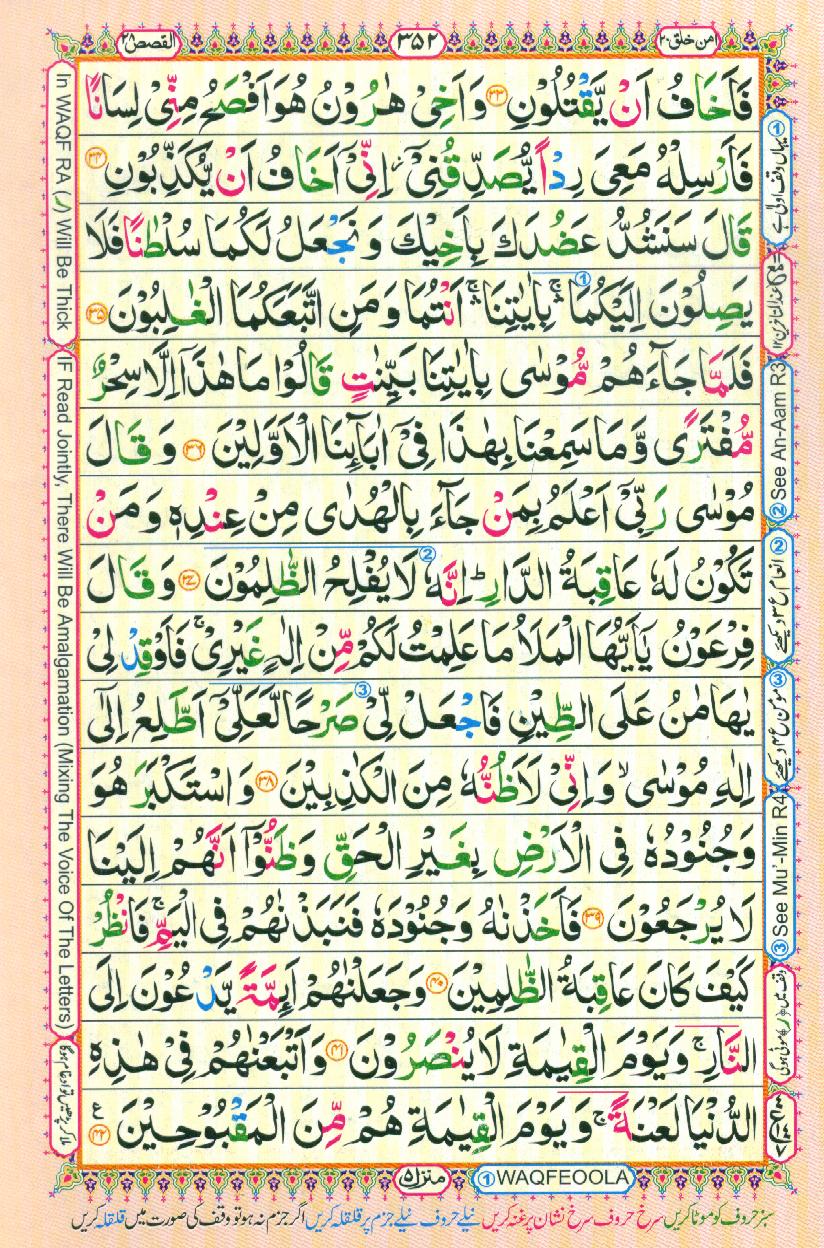 امن خلق ٢٠
٣٥٢
القصص ٢٨
فَاَخَافُ اَنْ يَّقْتُلُوْنِ ﴿٣٣﴾ وَاَخِيْ هٰرُوْنُ هُوَ اَفْصَحُ مِنِّيْ لِسَانًا
فَاَرْسِلْهُ مَعِيَ رِدْاً يُّصَدِّقُنِيْٓ ؗ اِنِّيْٓ اَخَافُ اَنْ يُّكَذِّبُوْنِ ﴿٣٤﴾
قَالَ سَنَشُدُّ عَضُدَكَ بِاَخِيْكَ وَ نَجْعَلُ لَكُمَا سُلْطٰنًا فَلَا
يَصِلُوْنَ اِلَيْكُمَا ۚۛ ① بِاٰيٰتِنَا ۚۛ اَنْتُمَا وَ مَنِ اتَّبَعَكُمَا الْغٰلِبُوْنَ ﴿٣٥﴾
فَلَمَّا جَآءَهُمْ مُّوْسٰى بِاٰيٰتِنَا بَيِّنٰتٍ قَالُوْا مَا هٰذَآ اِلَّا سِحْرٌ
مُّفْتَرًى وَّ مَا سَمِعْنَا بِهٰذَا فِيْٓ اٰبَآئِنَا الْاَوَّلِيْنَ ﴿٣٦﴾ وَ قَالَ
مُوْسٰى رَبِّيْٓ اَعْلَمُ بِمَنْ جَآءَ بِالْهُدٰى مِنْ عِنْدِهٖ وَ مَنْ
تَكُوْنُ لَهٗ عَاقِبَةُ الدَّارِ ؕ اِنَّهٗ ② لَا يُفْلِحُ الظّٰلِمُوْنَ ﴿٣٧﴾ وَ قَالَ
فِرْعَوْنُ يٰٓاَيُّهَا الْمَلَاُ مَا عَلِمْتُ لَكُمْ مِّنْ اِلٰهٍ غَيْرِيْ ۚ فَاَوْقِدْ لِيْ
يٰهَامٰنُ عَلَى الطِّيْنِ فَاجْعَلْ لِّيْ ③ صَرْحًا لَّعَلِّيْٓ اَطَّلِعُ اِلٰٓى
اِلٰهِ مُوْسٰى ۙ وَ اِنِّيْ لَاَظُنُّهٗ مِنَ الْكٰذِبِيْنَ ﴿٣٨﴾ وَ اسْتَكْبَرَ هُوَ
وَ جُنُوْدُهٗ فِي الْاَرْضِ بِغَيْرِ الْحَقِّ وَ ظَنُّوْٓا اَنَّهُمْ اِلَيْنَا
لَا يُرْجَعُوْنَ ﴿٣٩﴾ فَاَخَذْنٰهُ وَ جُنُوْدَهٗ فَنَبَذْنٰهُمْ فِي الْيَمِّ ۚ فَانْظُرْ
كَيْفَ كَانَ عَاقِبَةُ الظّٰلِمِيْنَ ﴿٤٠﴾ وَ جَعَلْنٰهُمْ اَئِمَّةً يَّدْعُوْنَ اِلَى
النَّارِ ۚ وَ يَوْمَ الْقِيٰمَةِ لَا يُنْصَرُوْنَ ﴿٤١﴾ وَ اَتْبَعْنٰهُمْ فِيْ هٰذِهِ
الدُّنْيَا لَعْنَةً ۚ وَ يَوْمَ الْقِيٰمَةِ هُمْ مِّنَ الْمَقْبُوْحِيْنَ ﴿٤٢﴾ ع
① یہاں وقف اولیٰ ہے
② See An-Aam R3
② انعام ع ٣ دیکھئے
③ مومن ع ٤ دیکھئے
③ See Mu'-Min R4
وقف میں (ر) موٹی ہوگی
In WAQF RA (ر) Will Be Thick
IF Read Jointly, There Will Be Amalgamation (Mixing The Voice Of The Letters)
ملا کر پڑھیں تو ادغام ہوگا
منزل ٥
① WAQFEOOLA
سبز حروف کو موٹا کریں سرخ حروف سرخ نشان پر غنہ کریں نیلے حروف نیلے جزم پر قلقلہ کریں اگر جزم نہ ہو تو وقف کی صورت میں قلقلہ کریں